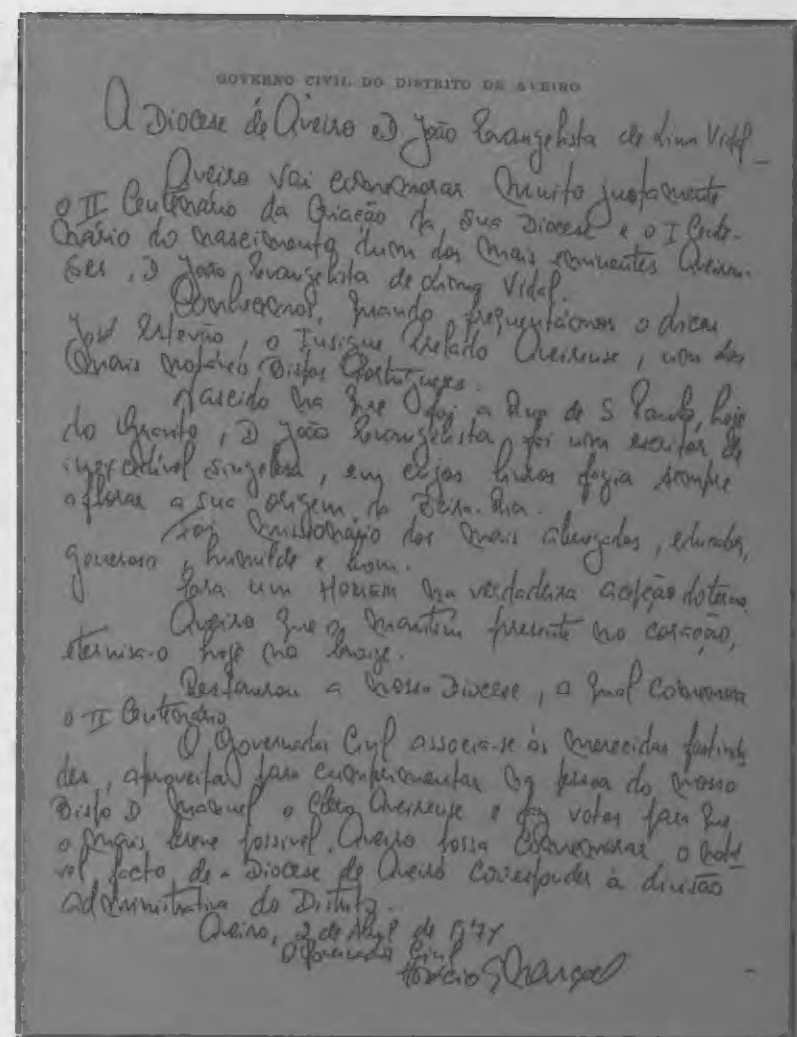 GOVERNO CIVIL DO DISTRITO DE AVEIRO
A Diocese de Aveiro e D João Evangelista de Lima Vidal
Aveiro vai comemorar muito justamente
o II Centenário da Criação da sua Diocese e o I Cente-
nário do nascimento dum dos mais eminentes Aveiren-
ses, D João Evangelista de Lima Vidal.
Conhecemos, quando frequentámos o Liceu
José Estevão, o Insigne Prelado Aveirense, um dos
mais notáveis Bispos Portugueses.
Nascido na que foi a Rua de S Paulo, hoje
do Gravito, D João Evangelista, foi um escritor de
inexcedível singeleza, em cujos livros fazia sempre
aflorar a sua origem da Beira-Ria.
Foi missionário dos mais abnegados, educador,
generoso, humilde e bom.
Para um Homem na verdadeira acepção do termo,
Aveiro que o mantém presente no coração,
eterniza-o hoje no bronze.
Restaurou a nossa Diocese, a qual comemora
o II Centenário
O Governador Civil associa-se às merecidas festivida
des, aproveita para cumprimentar na pessoa do nosso
Bispo D Manuel o Clero Aveirense e faz votos para que
o mais breve possível, Aveiro possa comemorar o notá
vel facto de a Diocese de Aveiro corresponder à divisão
administrativa do Distrito.
Aveiro, 2 de Abril de 1974
O Governador Civil
Horácio Marçal